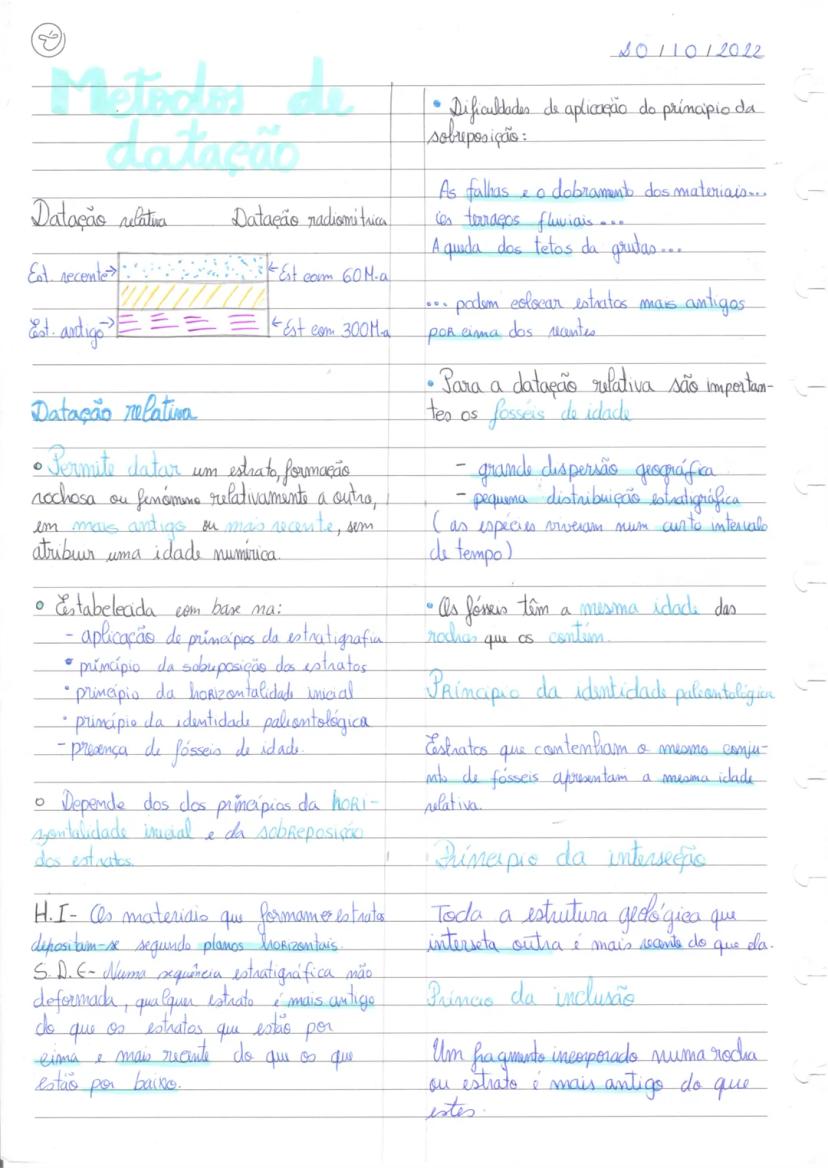 20/10/2022
Metodos de
datação
Datação relativa Datação radiomitrica
Est. recente → ← Est com 60 M.a
Est. antigo → ← Est com 300 M.a
Datação relativa
• Permite datar um estrato, formação
rochosa ou fenómeno relativamente a outro,
em mais antigo ou mais recente, sem
atribuir uma idade numérica.
• Estabelecida com base na:
- aplicação de princípios da estratigrafia
• princípio da sobreposição dos estratos
• princípio da horizontalidade inicial
• princípio da identidade paleontológica
- presença de fósseis de idade.
• Depende dos dos princípios da hori-
zontalidade inicial e da sobreposição
dos estratos.
H.I- Os materiais que formam os estratos
depositam-se segundo planos horizontais.
S.D.E- Numa sequência estratigráfica não
deformada, qualquer estrato é mais antigo
do que os estratos que estão por
cima e mais recente do que os que
estão por baixo.
• Dificuldades de aplicação do príncipio da
sobreposição:
As falhas e o dobramento dos materiais...
Os terraços fluviais...
A queda dos tetos da grutas...
... podem colocar estratos mais antigos
por cima dos recentes
• Para a datação relativa são importan-
tes os fósseis de idade
- grande dispersão geográfica
- pequena distribuição estratigráfica
(as espécies viveram num curto intervalo
de tempo)
• Os fósseis têm a mesma idade das
rochas que os contém.
Príncipio da identidade paleontológica
Estratos que contenham o mesmo conju-
nto de fósseis apresentam a mesma idade
relativa.
Príncipio da interseção
Toda a estrutura geológica que
interseta outra é mais recente do que ela.
Príncio da inclusão
Um fragmento incorporado numa rocha
ou estrato é mais antigo do que
estes.